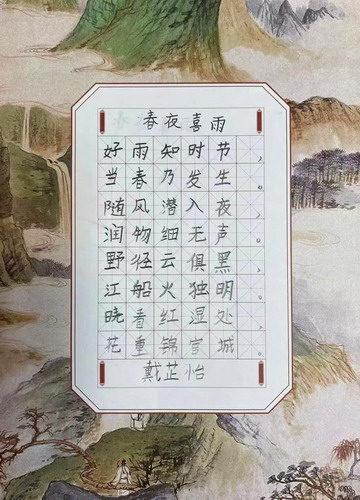 春夜喜雨
好雨知时节，
当春乃发生。
随风潜入夜，
润物细无声。
野径云俱黑，
江船火独明。
晓看红湿处，
花重锦官城。
戴芷怡